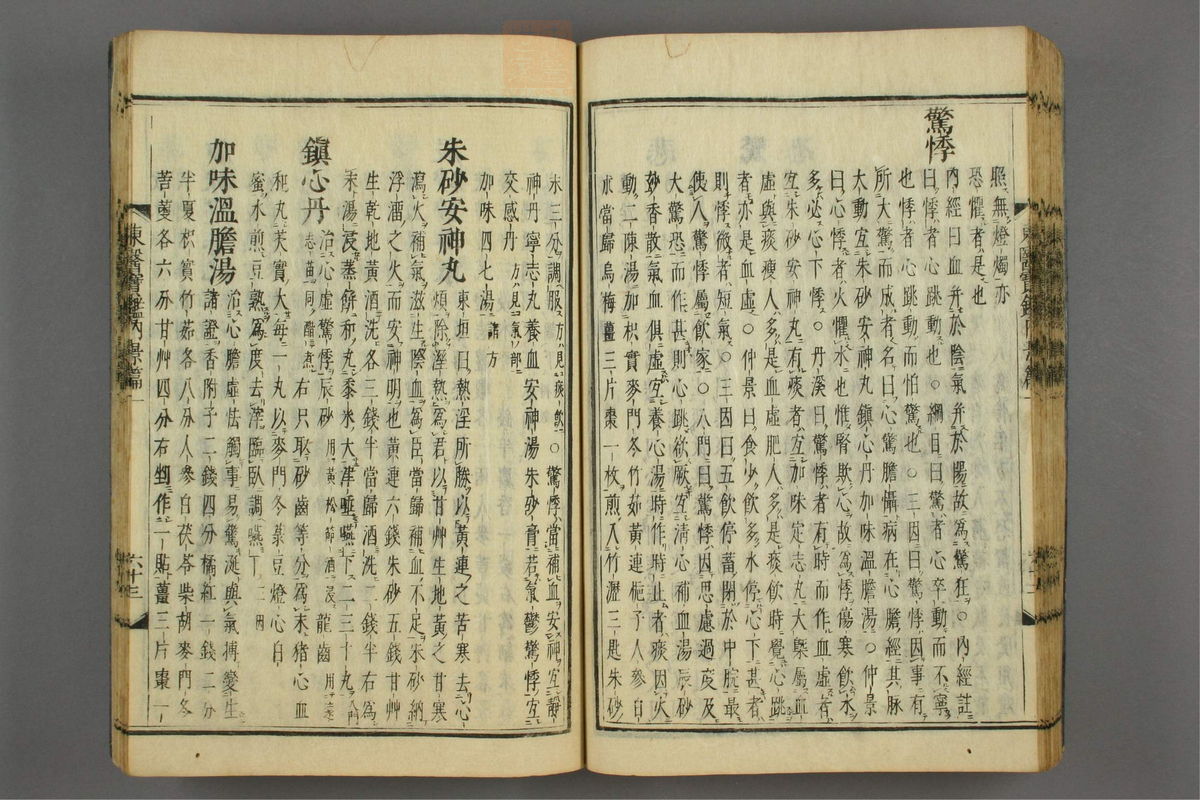 照無燈燭亦
恐懼者是也
驚悸
內經曰血并於陰氣并於陽故為驚狂○內經註
曰悸者心跳動也○綱目曰驚者心卒動而不寧
也悸者心跳動而怕驚也○三因曰驚悸因事有
所大驚而成者名曰心驚膽懾病在心膽經其脉
大動宜朱砂安神丸鎮心丹加味溫膽湯○仲景
曰心悸者火懼水也惟腎欺心故為悸傷寒飲水
多必心下悸○丹溪曰驚悸者有時而作血虛者
宜朱砂安神丸有痰者宜加味定志丸大槩屬血
虛與痰瘦人多是血虛肥人多是痰飲時覺心跳
者亦是血虛○仲景曰食少飲多水停心下甚者
則悸微者短氣○三因曰五飲停蓄閉於中脘最
使人驚悸屬飲家○八門曰驚悸因思慮過度及
大驚恐而作甚則心跳欲厥宜清心補血湯辰砂
妙香散氣血俱虛宜養心湯時作時止者痰因火
動二陳湯加枳實麥門冬竹茹黃連梔子人參白
朮當歸烏梅薑三片棗一枚煎入竹瀝三匙朱砂
末三分調服方見痰飲○驚悸當補血安神宜靜
神丹寧志丸養血安神湯朱砂膏若氣鬱驚悸宜
交感丹方見氣部
加味四七湯諸方
朱砂安神丸
東垣曰熱淫所勝以黃連之苦寒去心
煩除濕熱為君以甘艸生地黃之甘寒
瀉火補氣滋生陰血為臣當歸補血不足朱砂納
浮溜之火而安神明也黃連六錢朱砂五錢甘艸
生乾地黃酒洗各三錢半當歸酒洗二錢半右為
末湯浸蒸餅和丸黍米大津唾嚥下二三十丸入門
鎮心丹
治心虛驚悸辰砂用黃松節酒浸龍齒用
志苗同醋煮右只取砂齒等分為末猪心血
和丸芡實大每一丸以麥門冬菉豆燈心白
蜜水煎豆熟為度去滓臨臥調嚥下
加味溫膽湯
治心膽虛怯觸事易驚涎與氣搏變生
諸證香附子二錢四分橘紅一錢二分
半夏枳實竹茹各八分人參白茯苓柴胡麥門冬
苦莄各六分甘艸四分右剉作二貼薑三片棗一
東醫寶鑑內景篇一
六十三